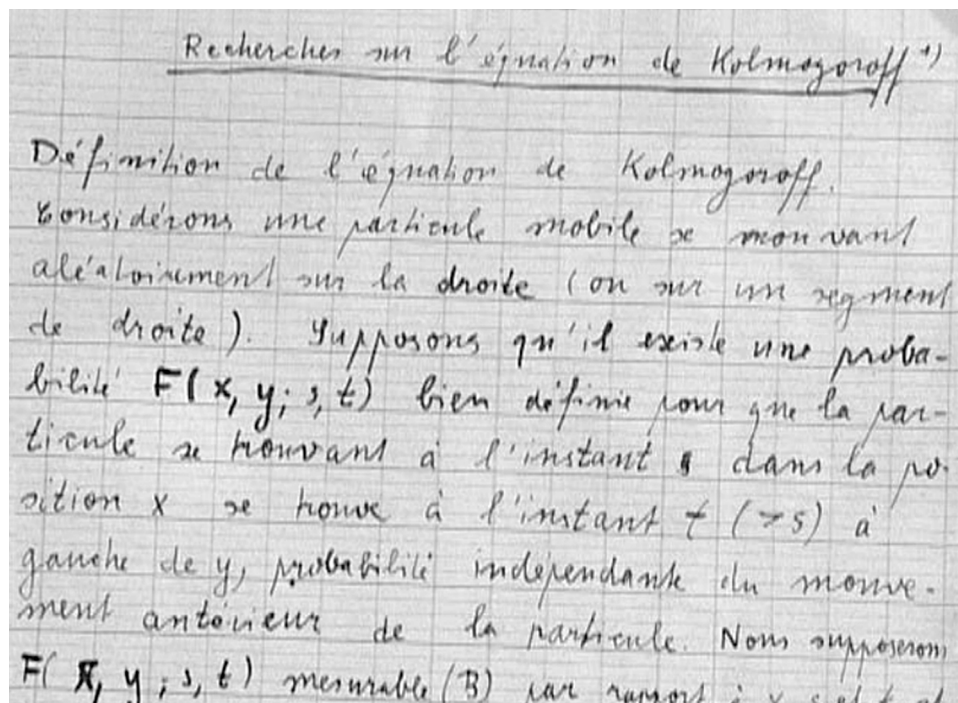 Recherches sur l'équation de Kolmogoroff 1)
Définition de l'équation de Kolmogoroff.
Considérons une particule mobile se mouvant
aléatoirement sur la droite (ou sur un segment
de droite). Supposons qu'il existe une proba-
bilité F(x, y; s, t) bien définie pour que la par-
ticule se trouvant à l'instant s dans la po-
sition x se trouve à l'instant t (>s) à
gauche de y, probabilité indépendante du mouve-
ment antérieur de la particule. Nous supposerons
F(x, y; s, t) mesurable (B) par rapport à x, s et t et